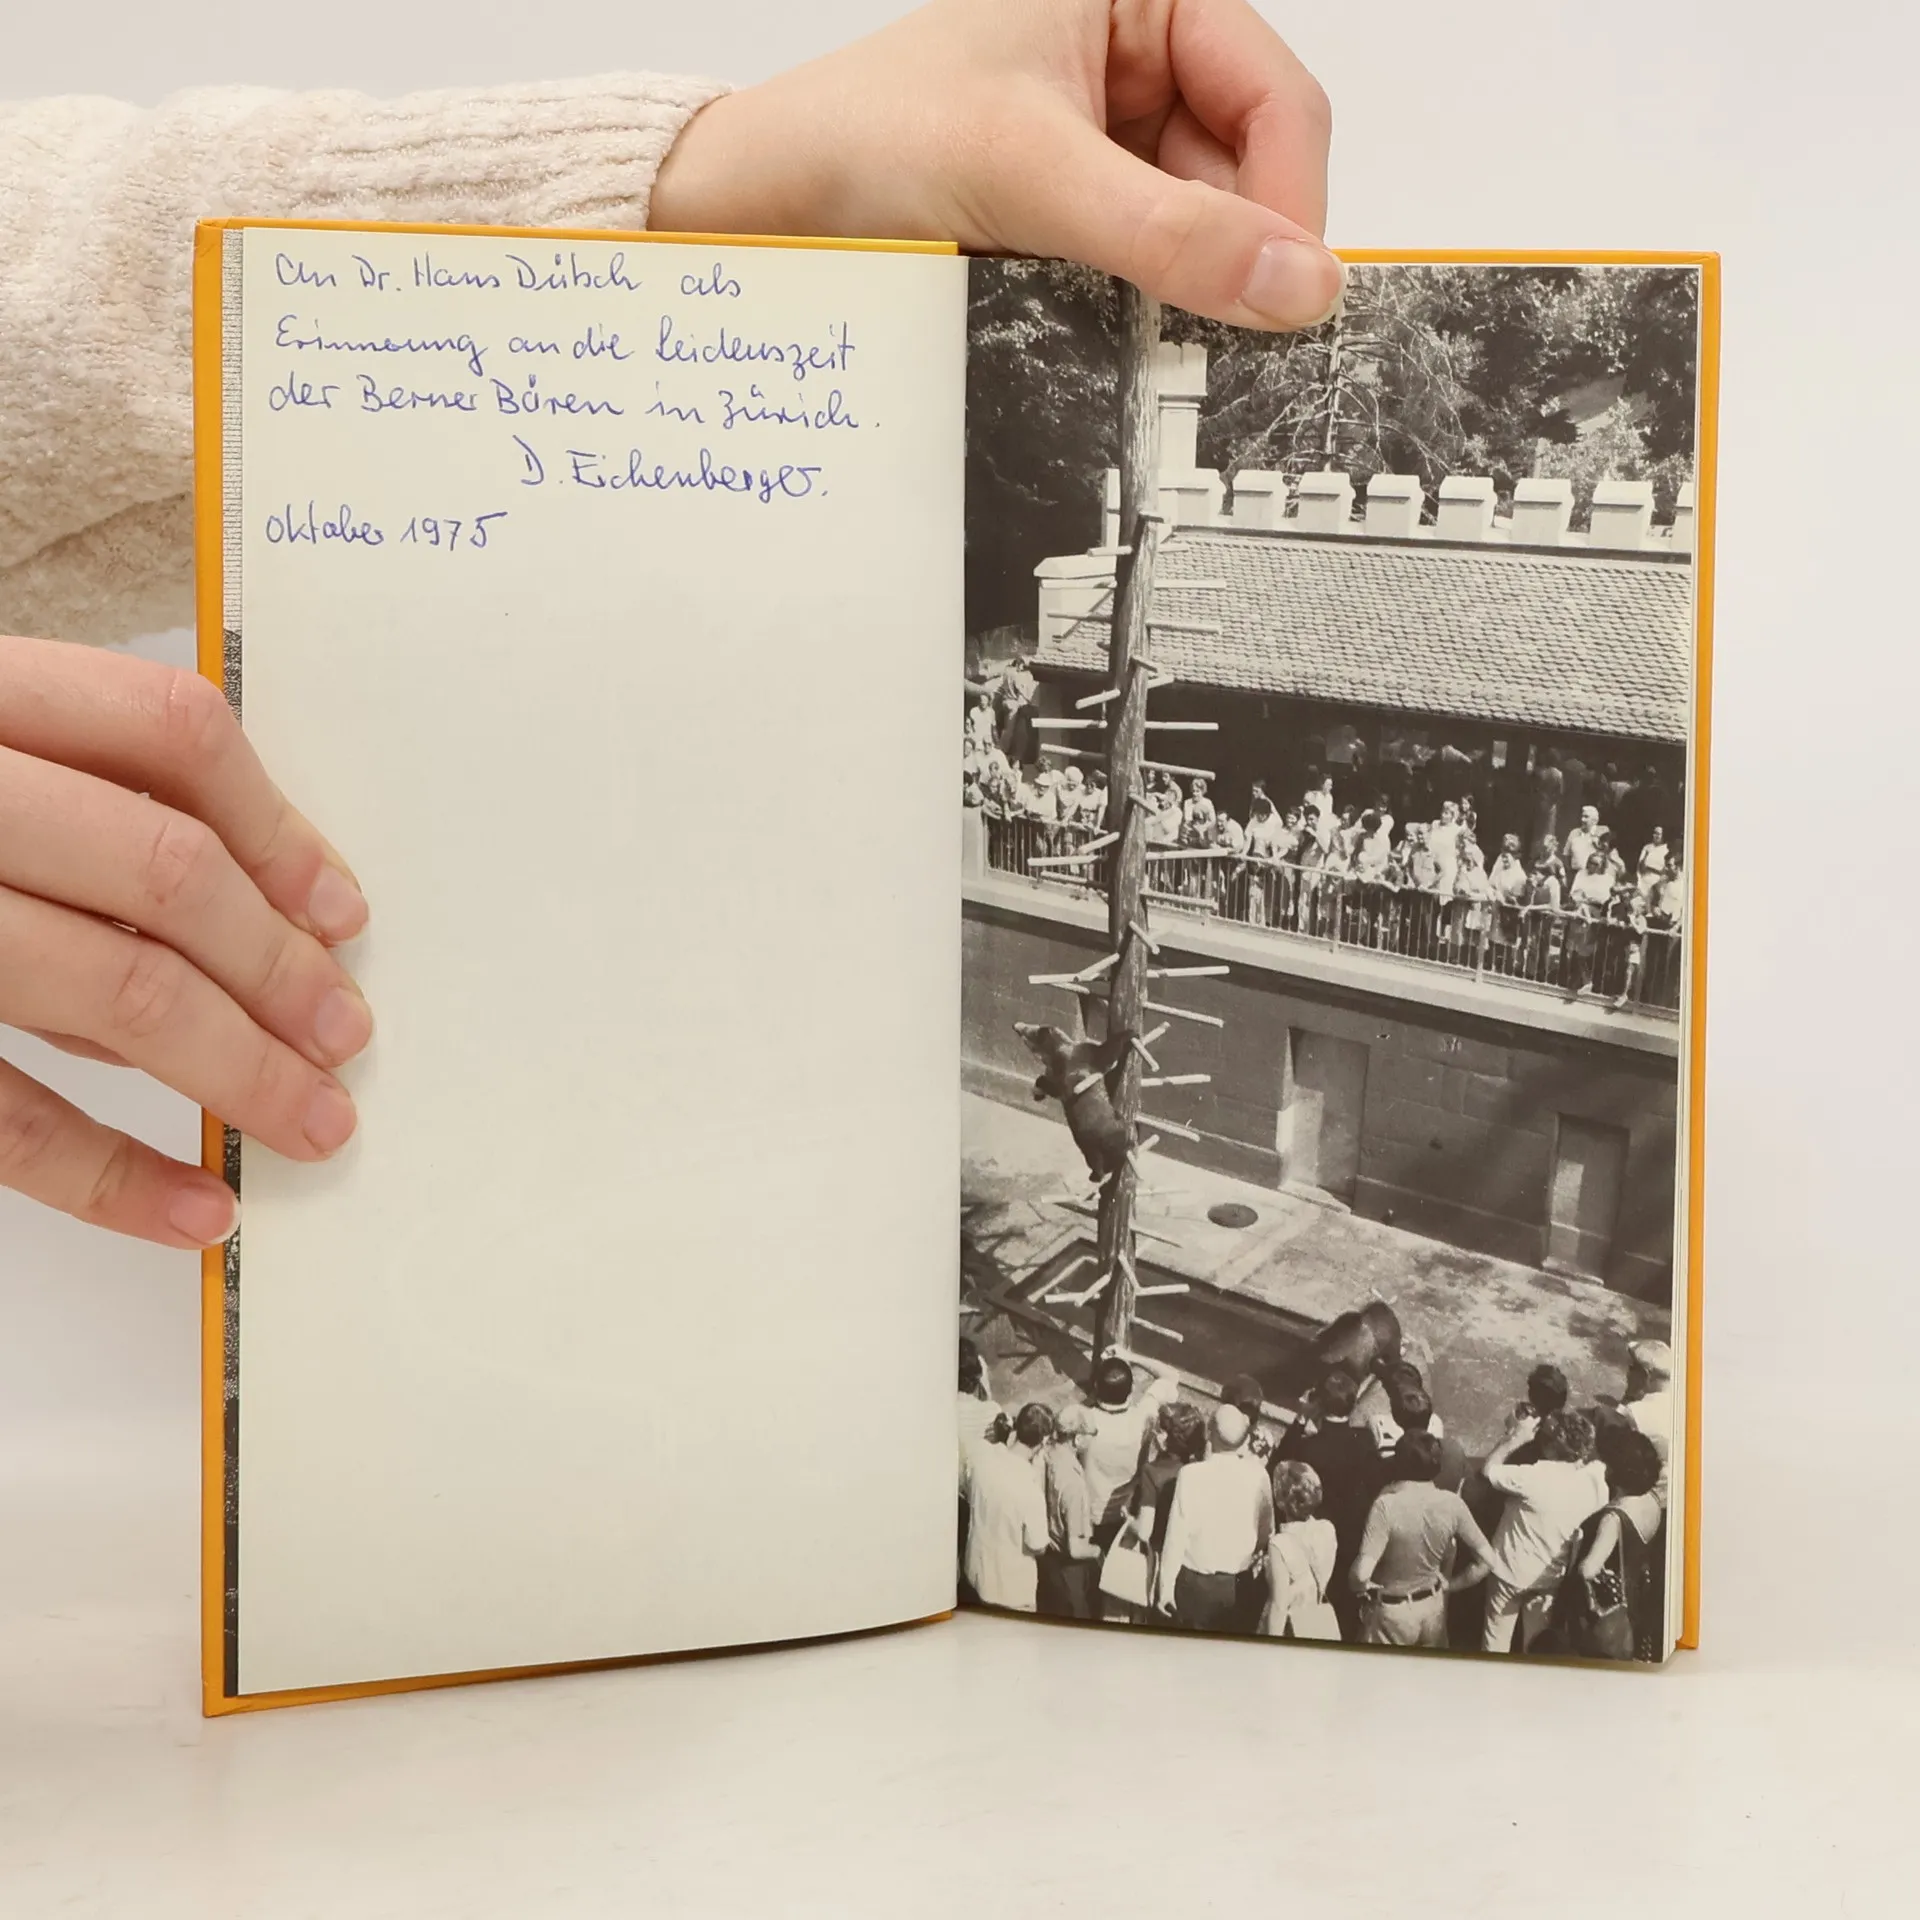 An Dr. Hans Dütsch als
Erinnerung an die Leidenszeit
der Berner Bären in Zürich.
D. Eichenberger.
Oktober 1975